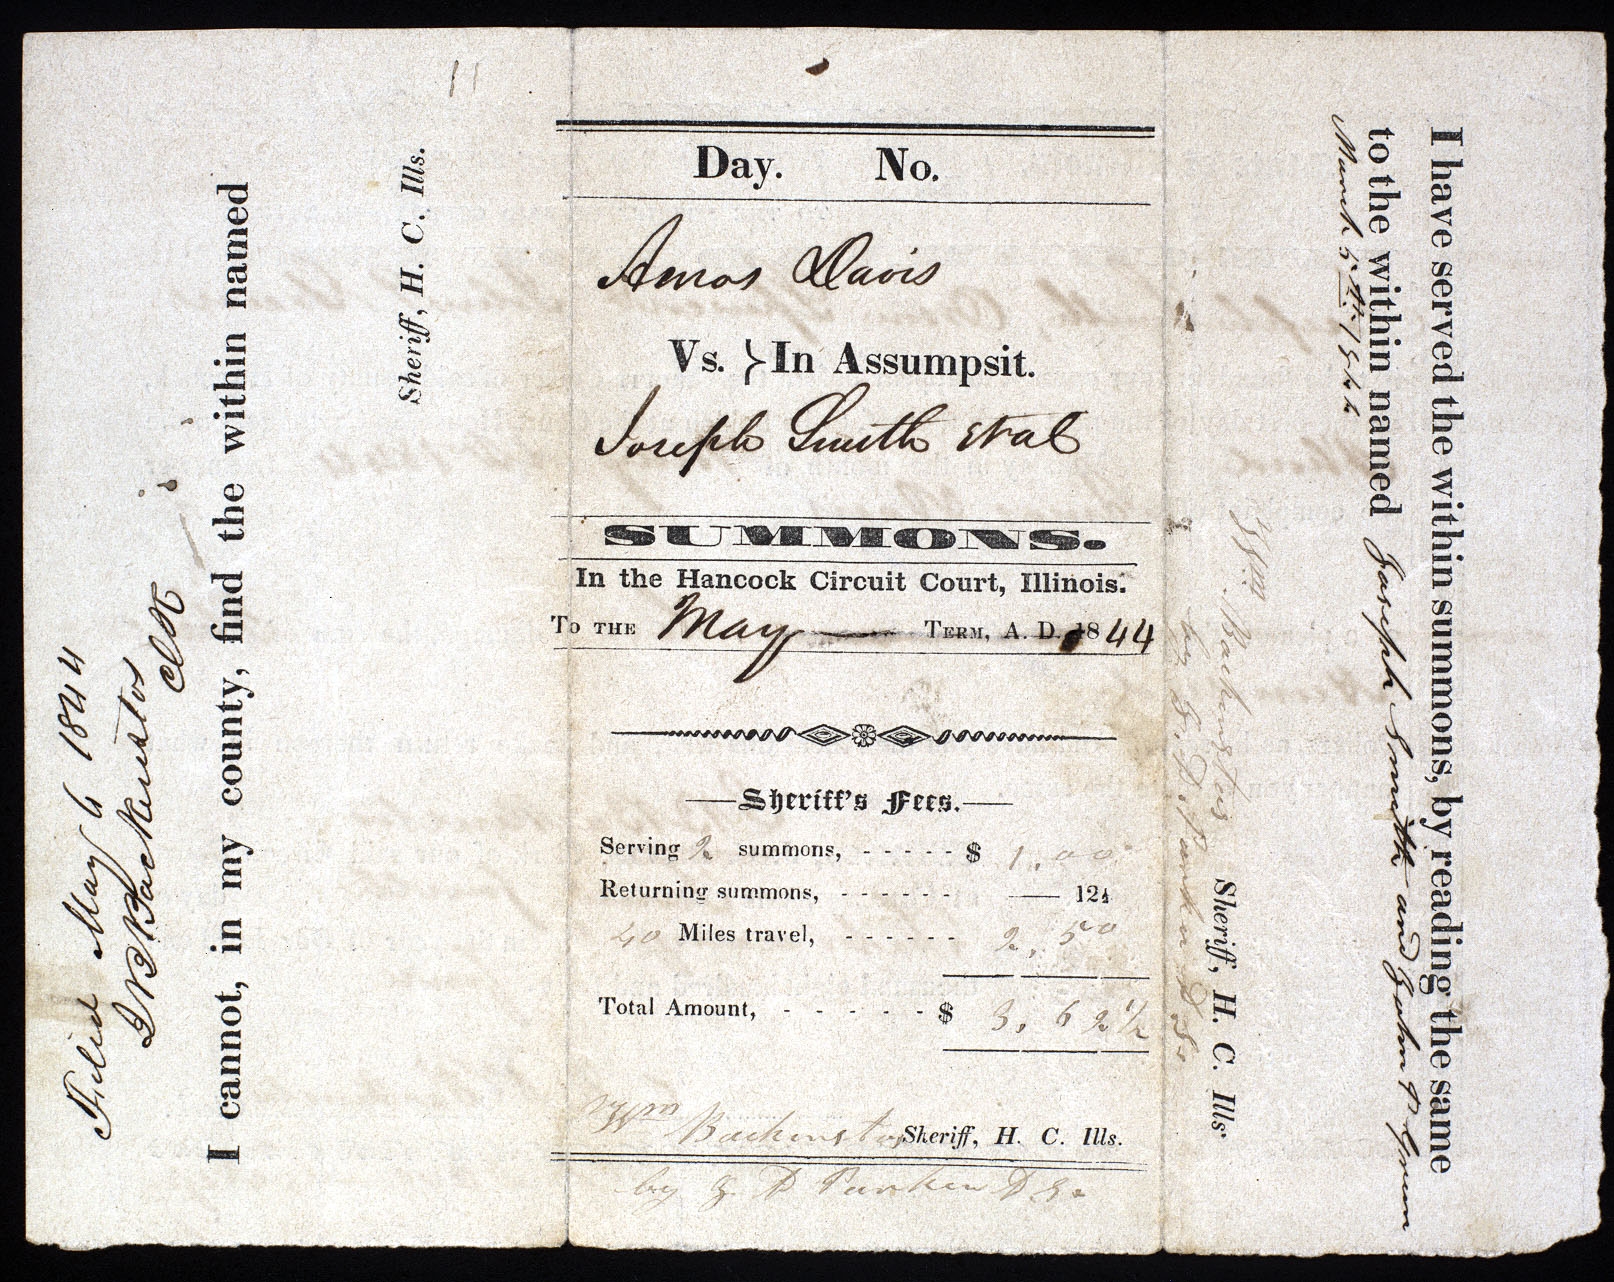 11
Day. No.
Amos Davis
Vs. } In Assumpsit.
Joseph Smith et al
SUMMONS.
In the Hancock Circuit Court, Illinois.
To the May Term, A. D. 1844
Sheriff's Fees.
Serving 2 summons, - - - - - $ 1.00
Returning summons, - - - - - - 12½
40 Miles travel, - - - - - - 2.50
Total Amount, - - - - - $ 3.62½
Wm Backenstos Sheriff, H. C. Ills.
by T. D. Parker D S.
I have served the within summons, by reading the same
to the within named Joseph Smith and John P Green
March 5th 1844
Wm. Backenstos Sheriff, H. C. Ills.
by T. D. Parker D S.
I cannot, in my county, find the within named
Sheriff, H. C. Ills.
Filed May 6 1844
J B Backenstos
Clk